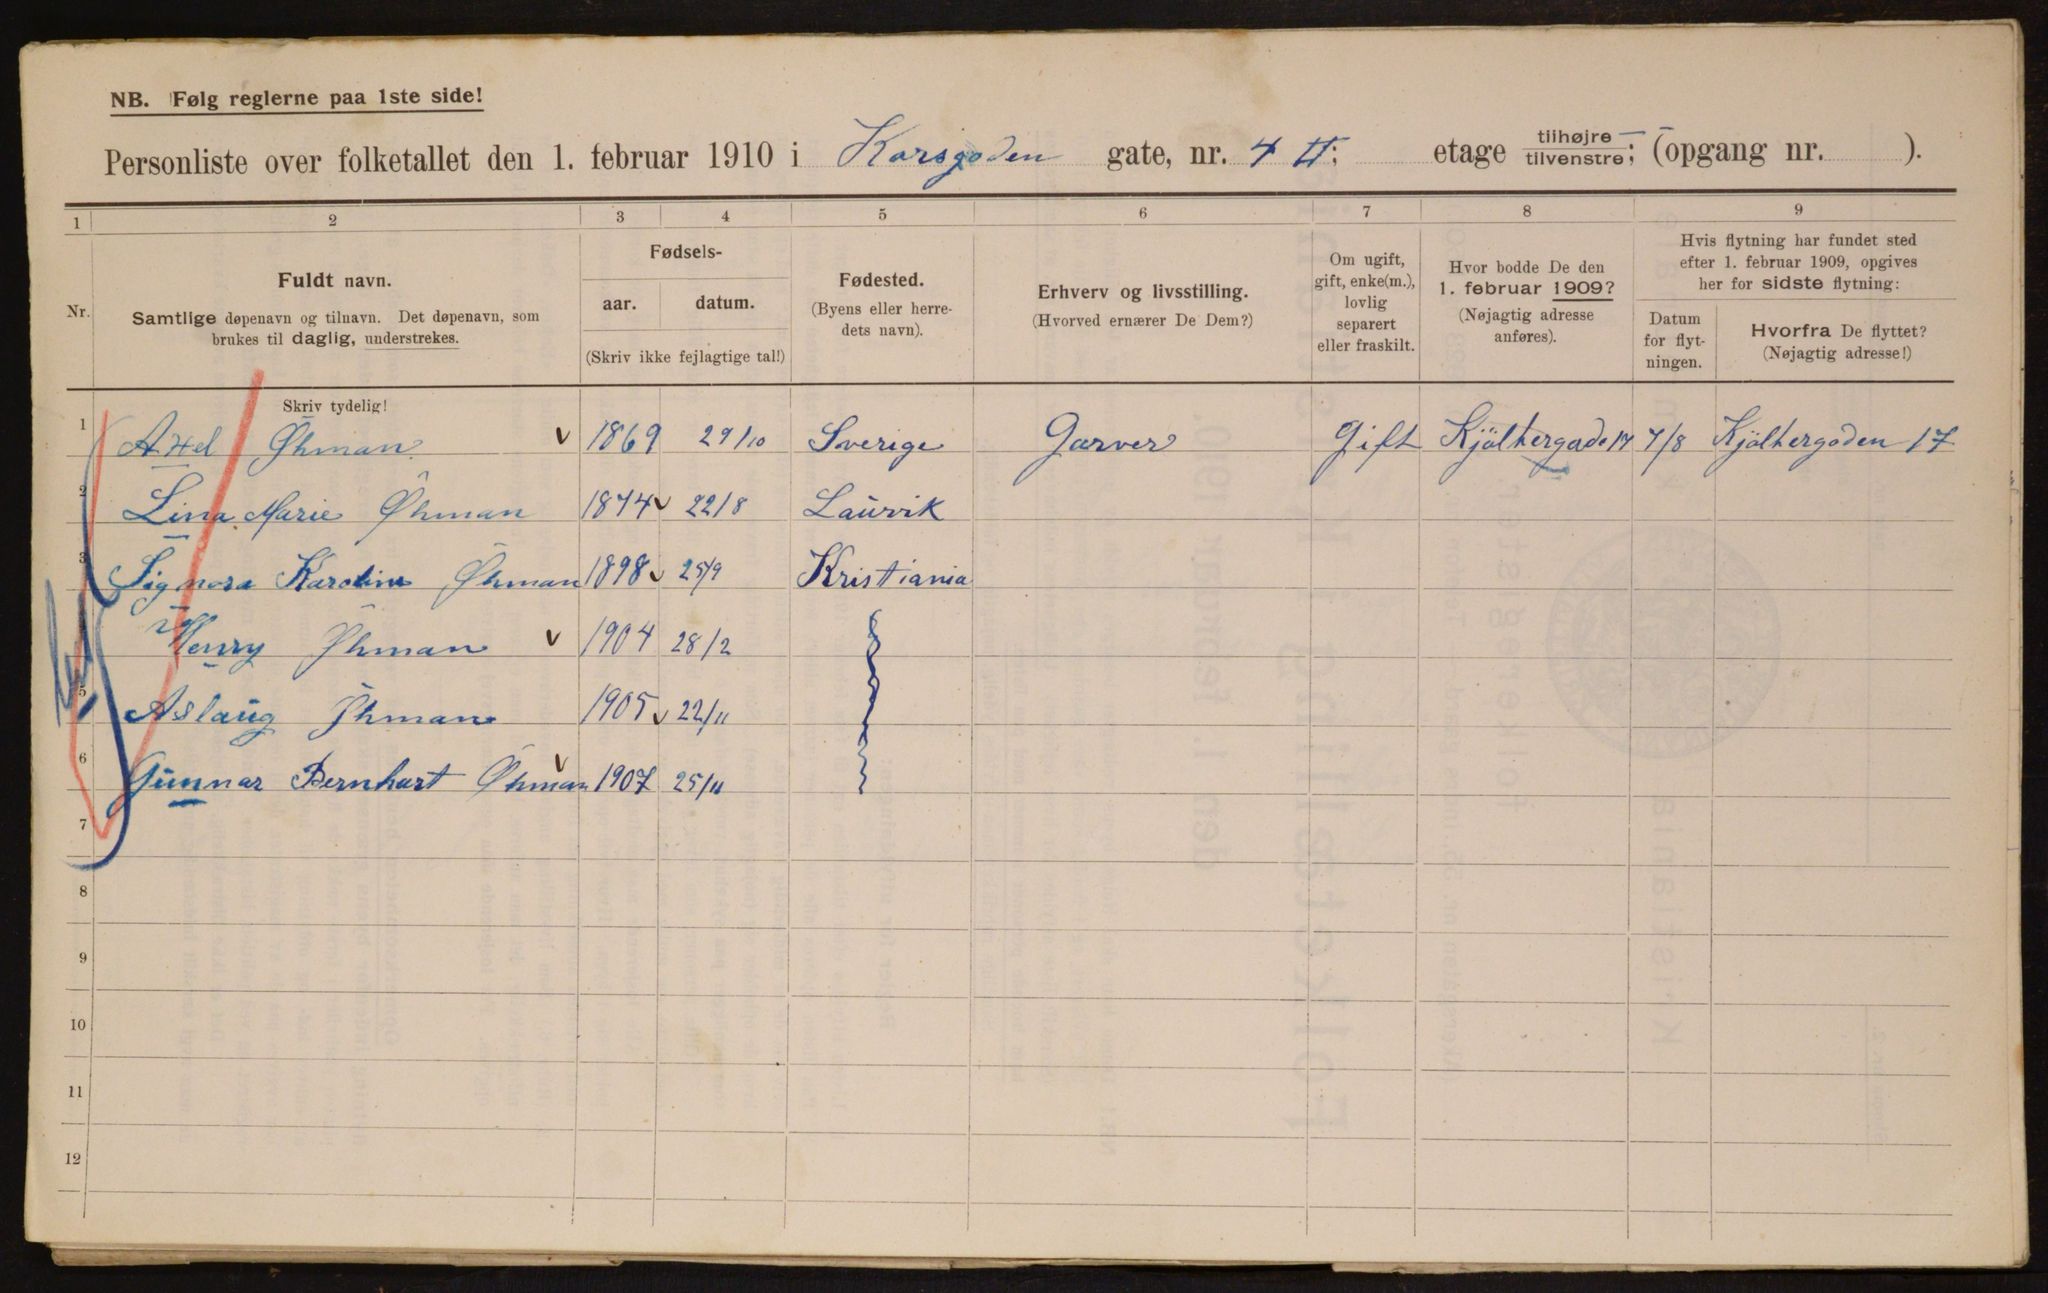 NB. Følg reglerne paa 1ste side!
Personliste over folketallet den 1. februar 1910 i Korsgaden gate, nr. 4 II; etage tilhøjre tilvenstre; (opgang nr. ).
1 2 3 4 5 6 7 8 9
Nr.
Fuldt navn.
Samtlige døpenavn og tilnavn. Det døpenavn, som
brukes til daglig, understrekes.
Fødsels-
aar. datum.
(Skriv ikke fejlagtige tal!)
Fødested.
(Byens eller herre-
dets navn).
Erhverv og livsstilling.
(Hvorved ernærer De Dem?)
Om ugift,
gift, enke(m.),
lovlig
separert
eller fraskilt.
Hvor bodde De den
1. februar 1909?
(Nøjagtig adresse
anføres).
Hvis flytning har fundet sted
efter 1. februar 1909, opgives
her for sidste flytning:
Datum
for flyt-
ningen.
Hvorfra De flyttet?
(Nøjagtig adresse!)
Skriv tydelig!
1 Axel Öhman v 1869 29/10 Sverige Garver Gift Kjölbergade 17 7/8 Kjölbergaden 17
2 Lina Marie Öhman 1874 v 22/8 Laurvik
3 Signora Karoline Öhman 1898 v 25/9 Kristiania
Henry Öhman v 1904 28/2
5 Aslaug Öhman 1905 v 22/11
6 Gunnar Bernhart Öhman v 1907 25/11
7
8
9
10
11
12